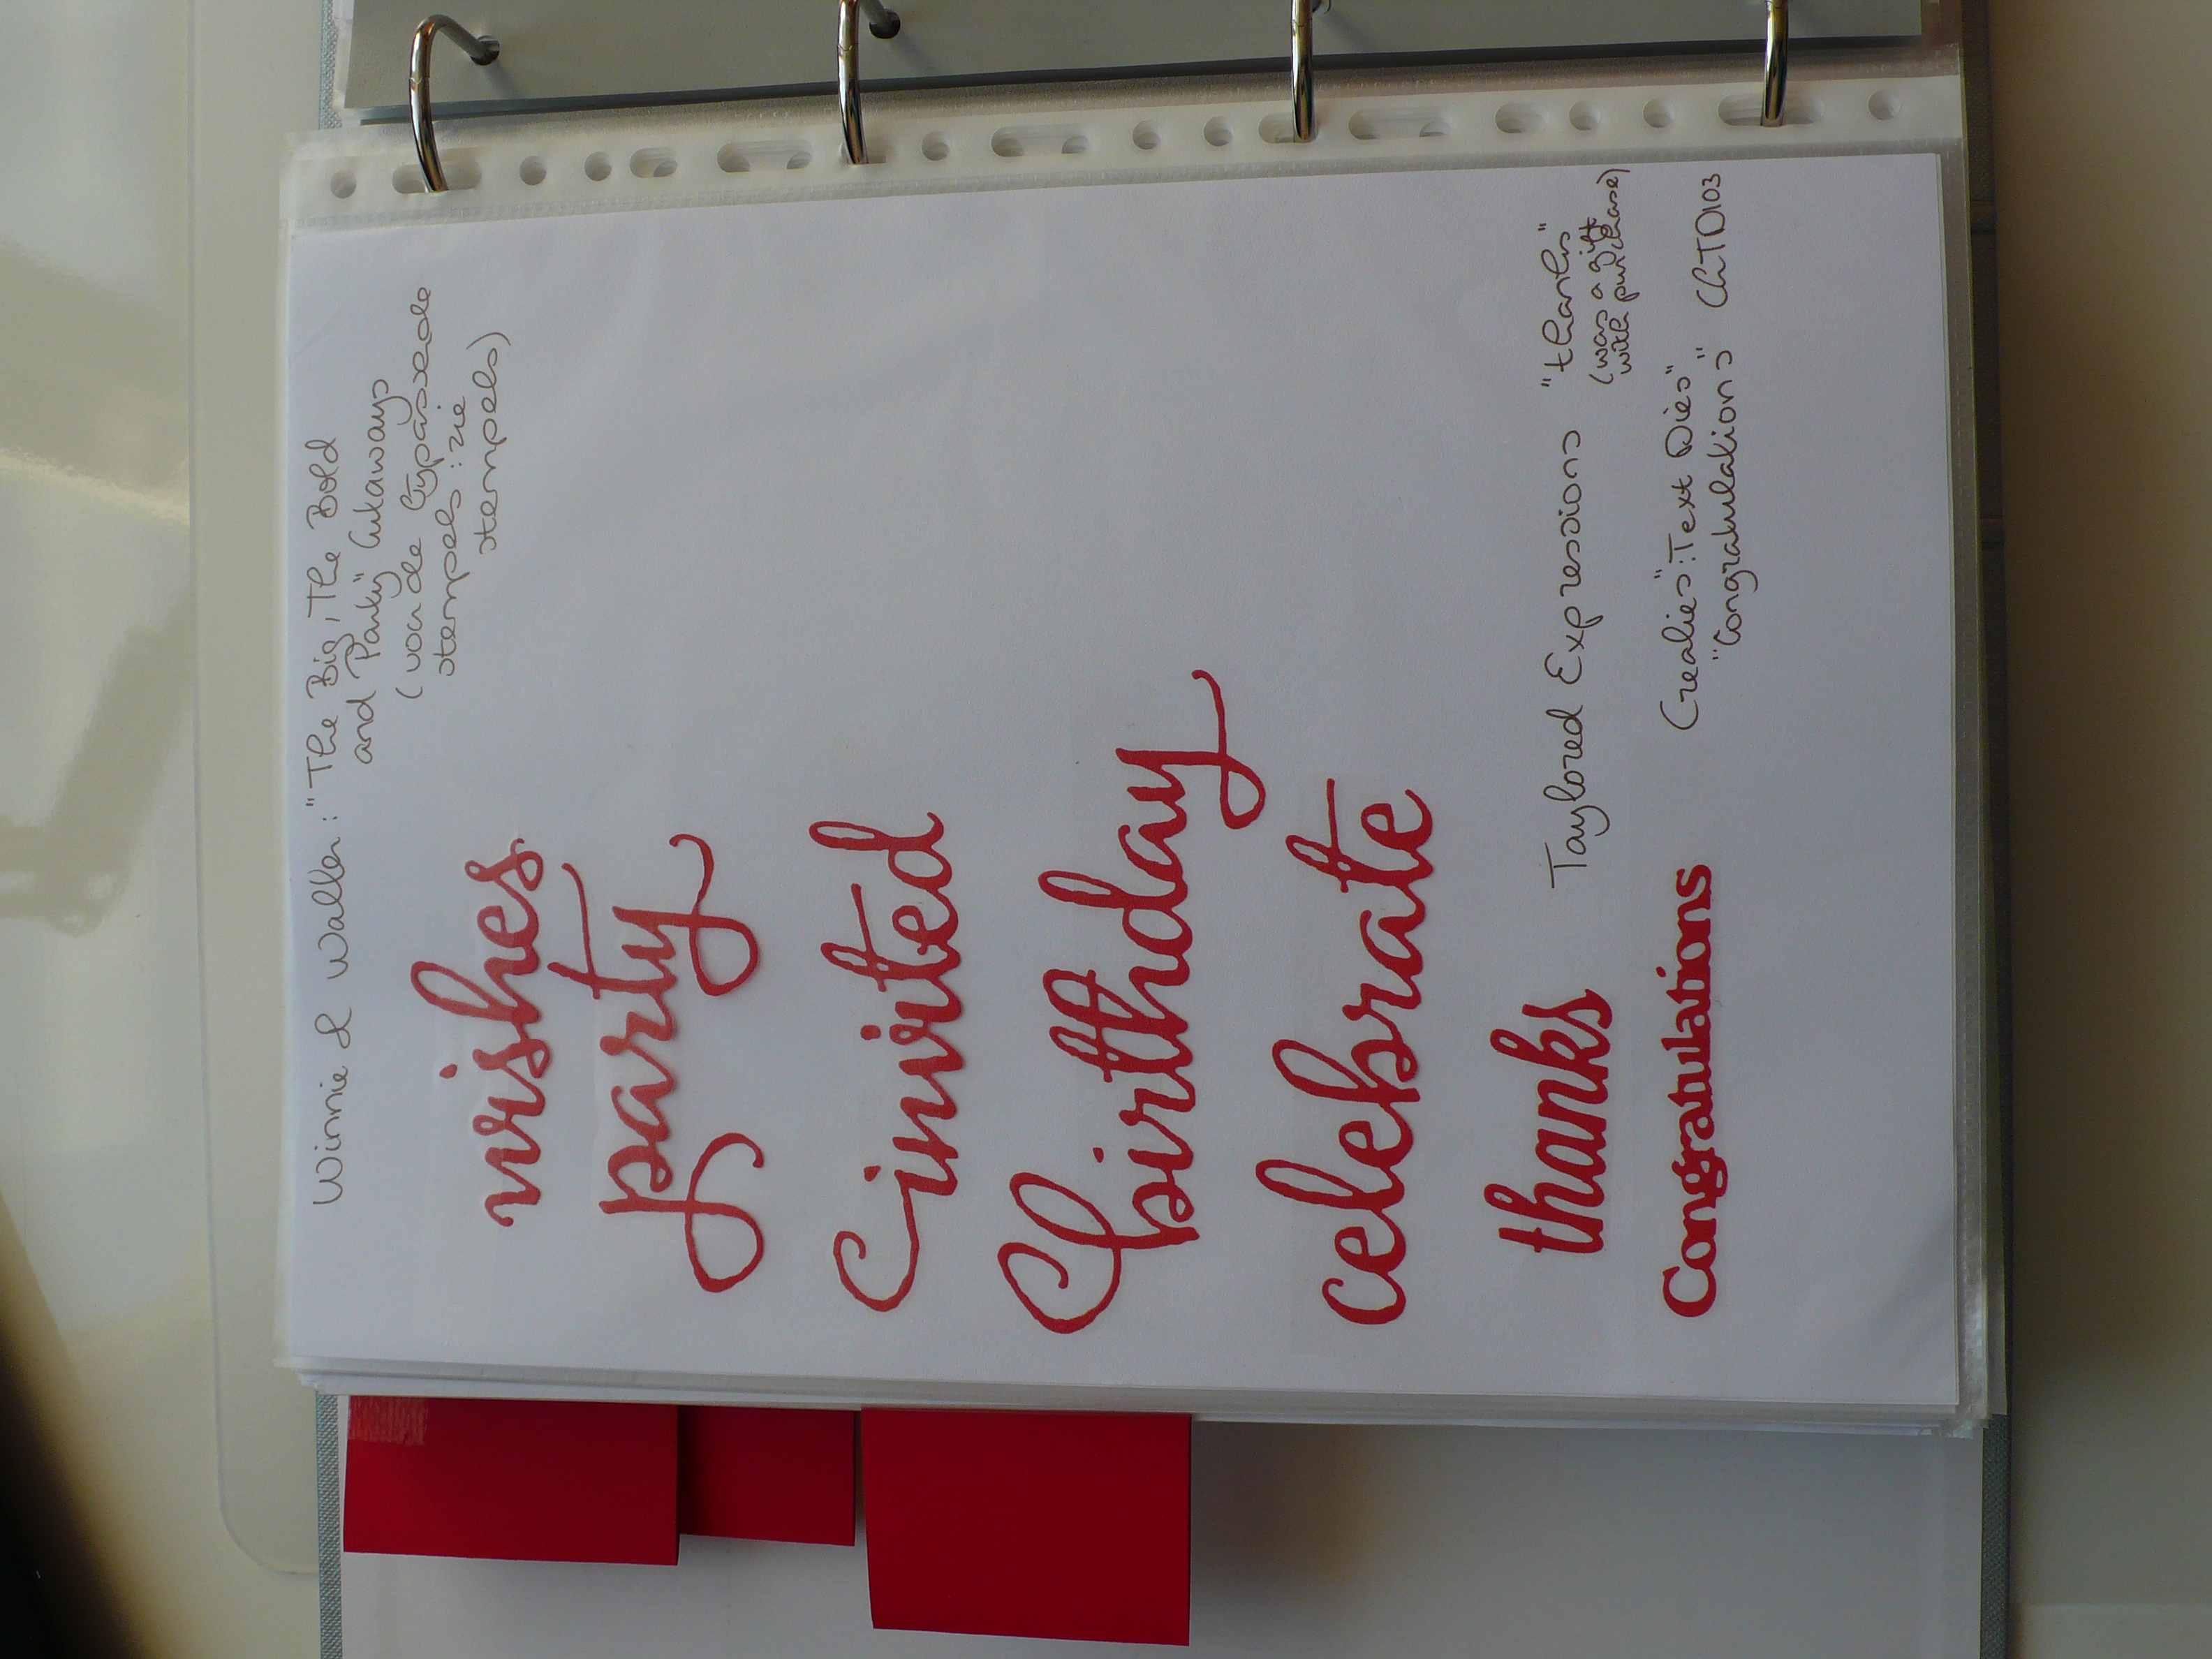 Winnie & Walter: "The Big, The Bold
and Party" Cutaways
(voor de bijpassende
stempels: zie
stempels)
wishes
party
invited
birthday
celebrate
thanks
Taylored Expressions "thanks"
(was a gift
with purchase)
Congratulations
Crealies": Text Dies"
"Congratulations" CLTD103